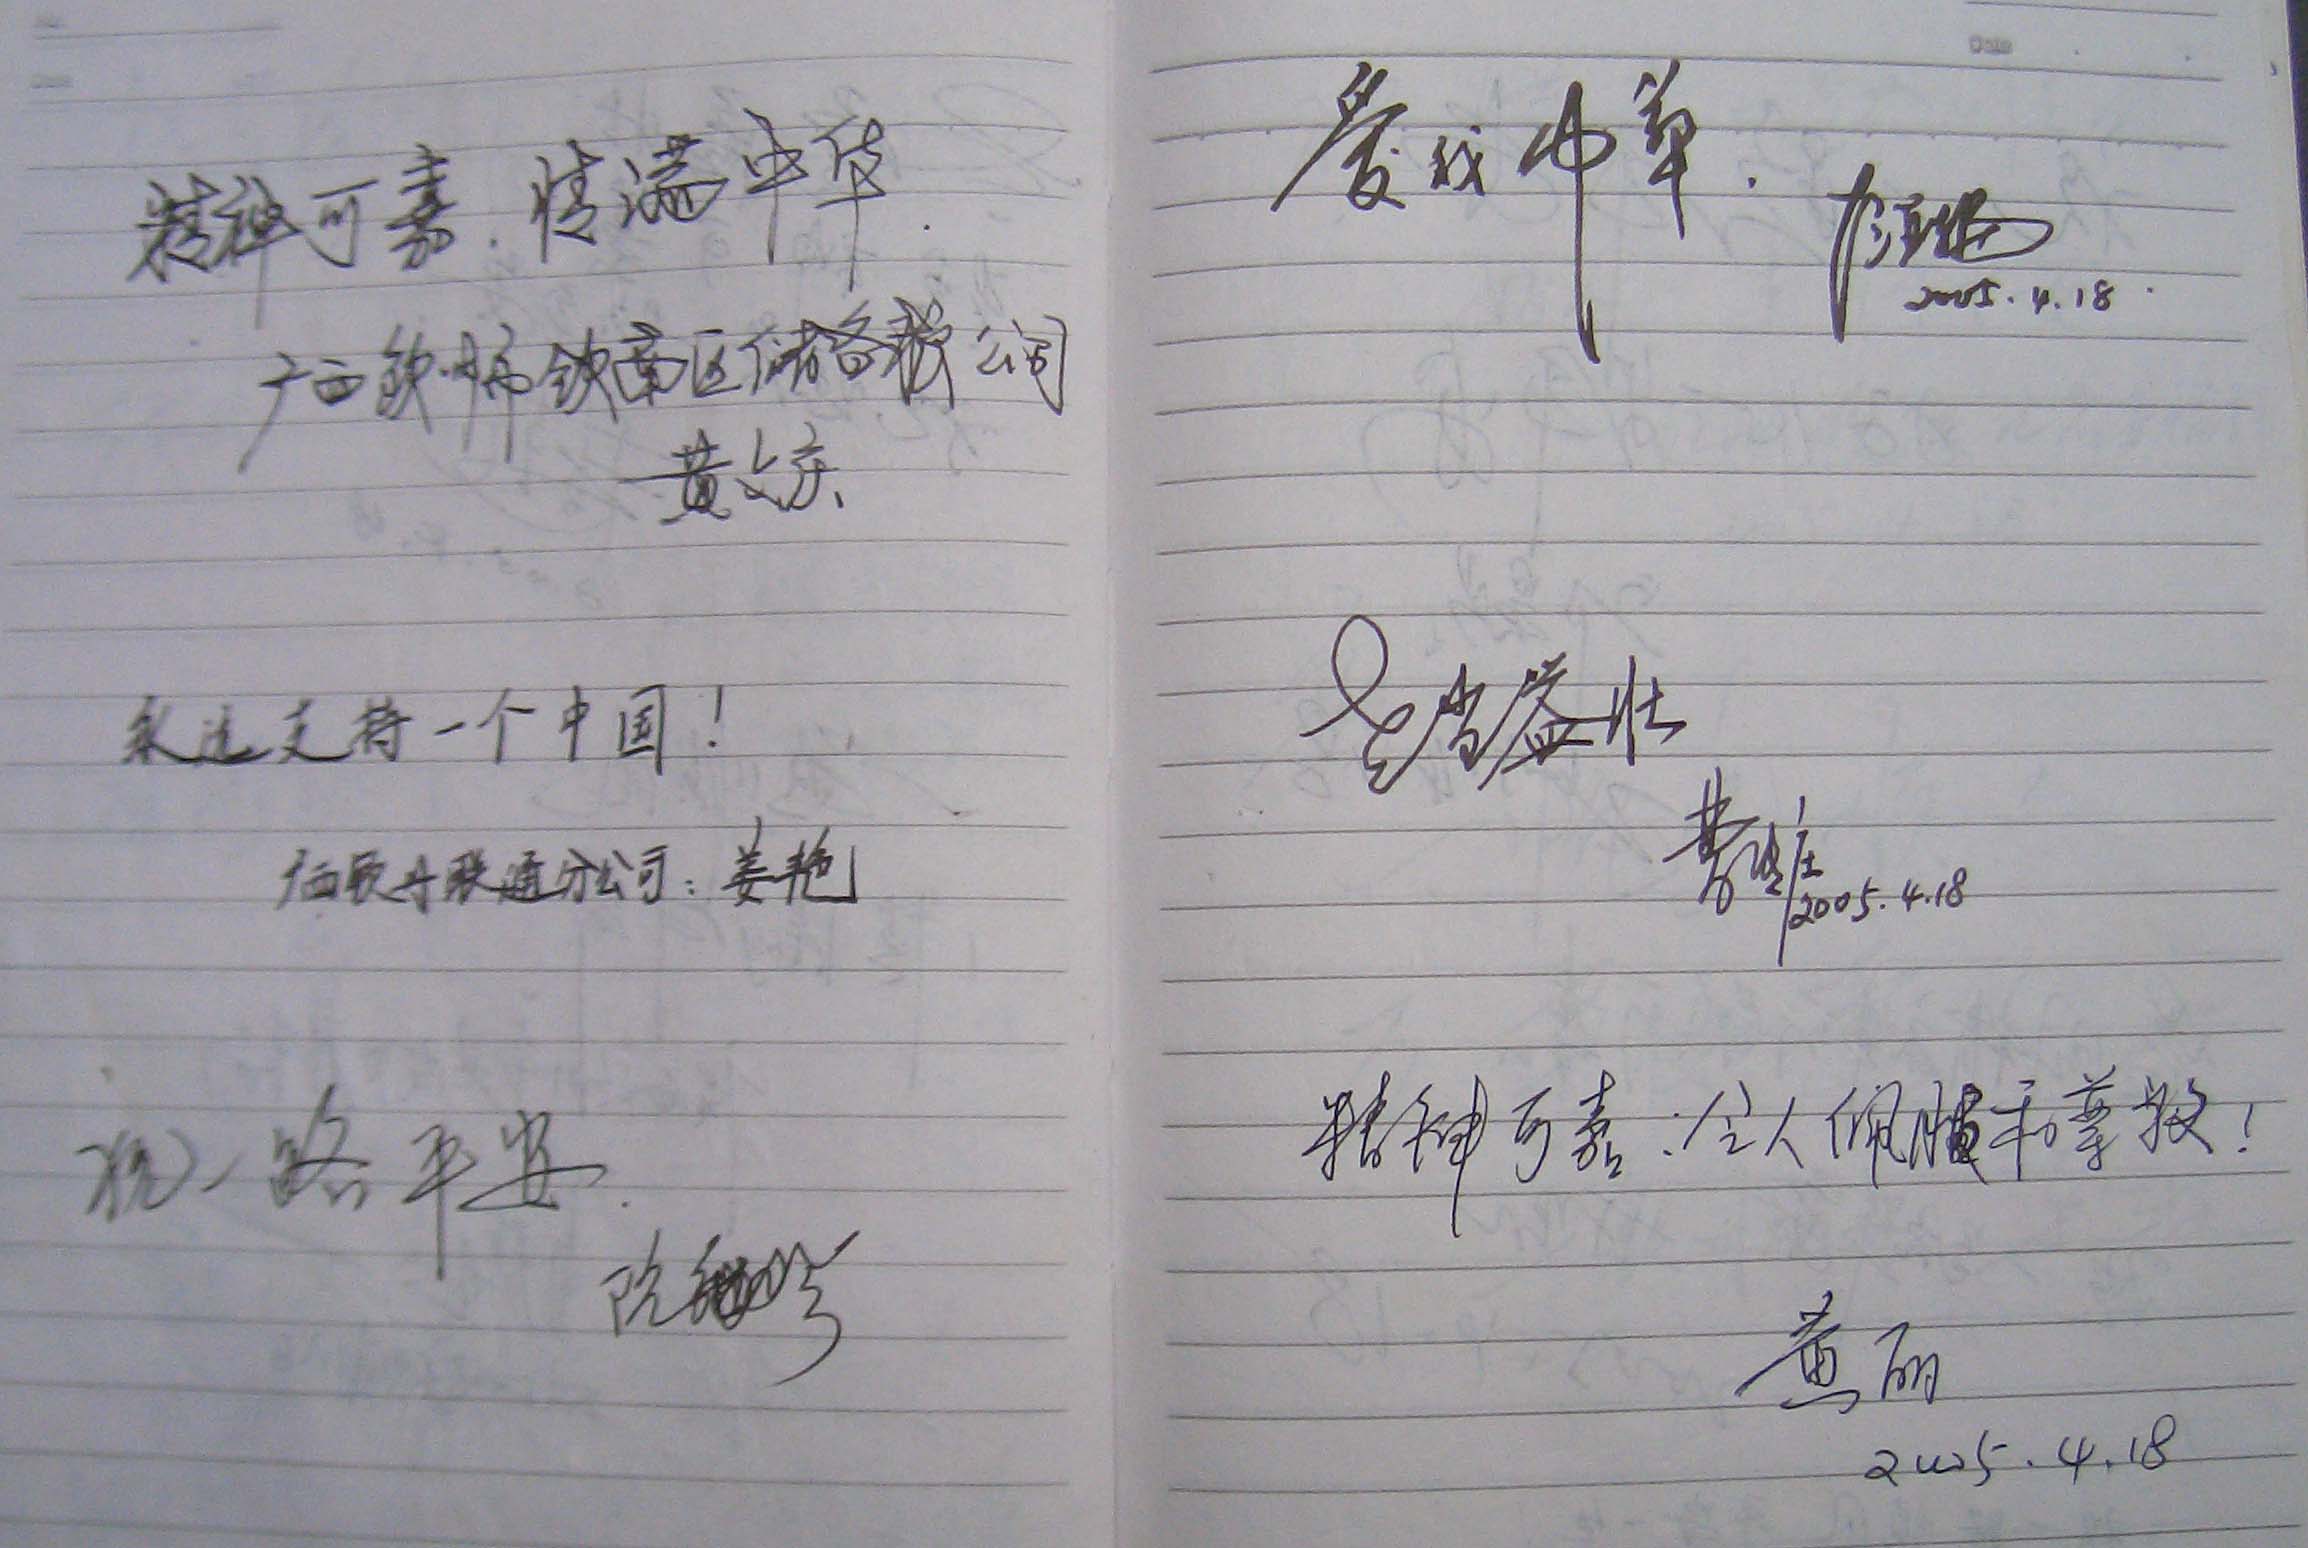 精神可嘉.情满中华.
广西钦州市钦南区储备粮公司
黄
永远支持一个中国!
广西钦州联通分公司:姜艳
祝一路平安.
阮
Date
爱我中华.
2005.4.18.
老当益壮
2005.4.18
精神可嘉:令人佩服和尊敬!
黄丽
2005.4.18